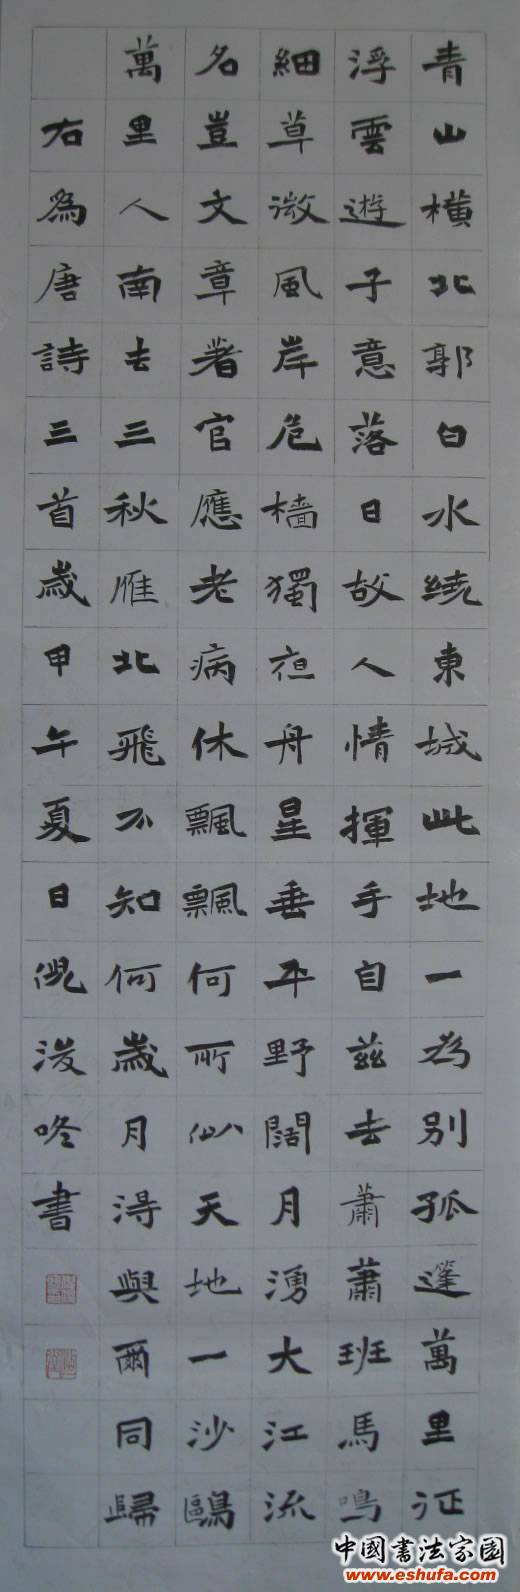 青山橫北郭白水繞東城此地一為別孤蓬萬里征
浮雲遊子意落日故人情揮手自茲去蕭蕭班馬鳴
細草微風岸危檣獨夜舟星垂平野闊月湧大江流
名豈文章著官應老病休飄飄何所似天地一沙鷗
萬里人南去三秋雁北飛不知何歲月得與爾同歸
右為唐詩三首歲甲午夏日倪浚咚書
中國書法家園
www.eshufa.com